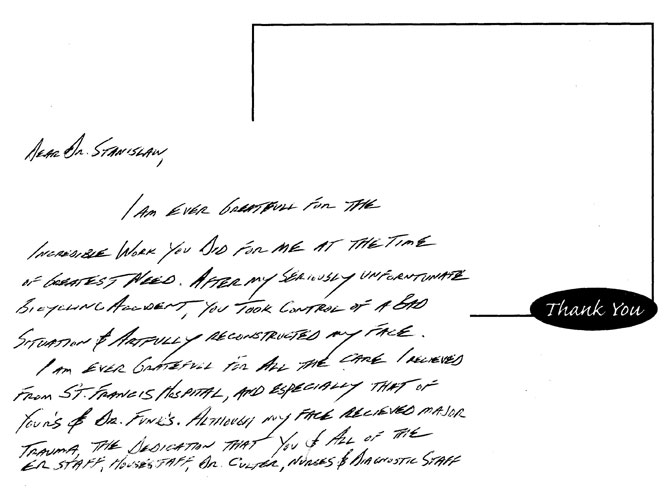 Dear Dr. Stanislaw,
I am ever greatfull for the
incredible work you did for me at the time
of greatest need. After my seriously unforntunate
bicycling accident, you took control of a bad
situation & artfully reconstructed my face.
I am ever gratefull for all the care I recieved
from St. Francis Hospital, and especially that of
Thank You
your's & Dr. Funk's. Although my face recieved major
trauma, the dedication that you & all of the
ER staff, housestaff, Dr. Culter, nurses & diagnostic staff